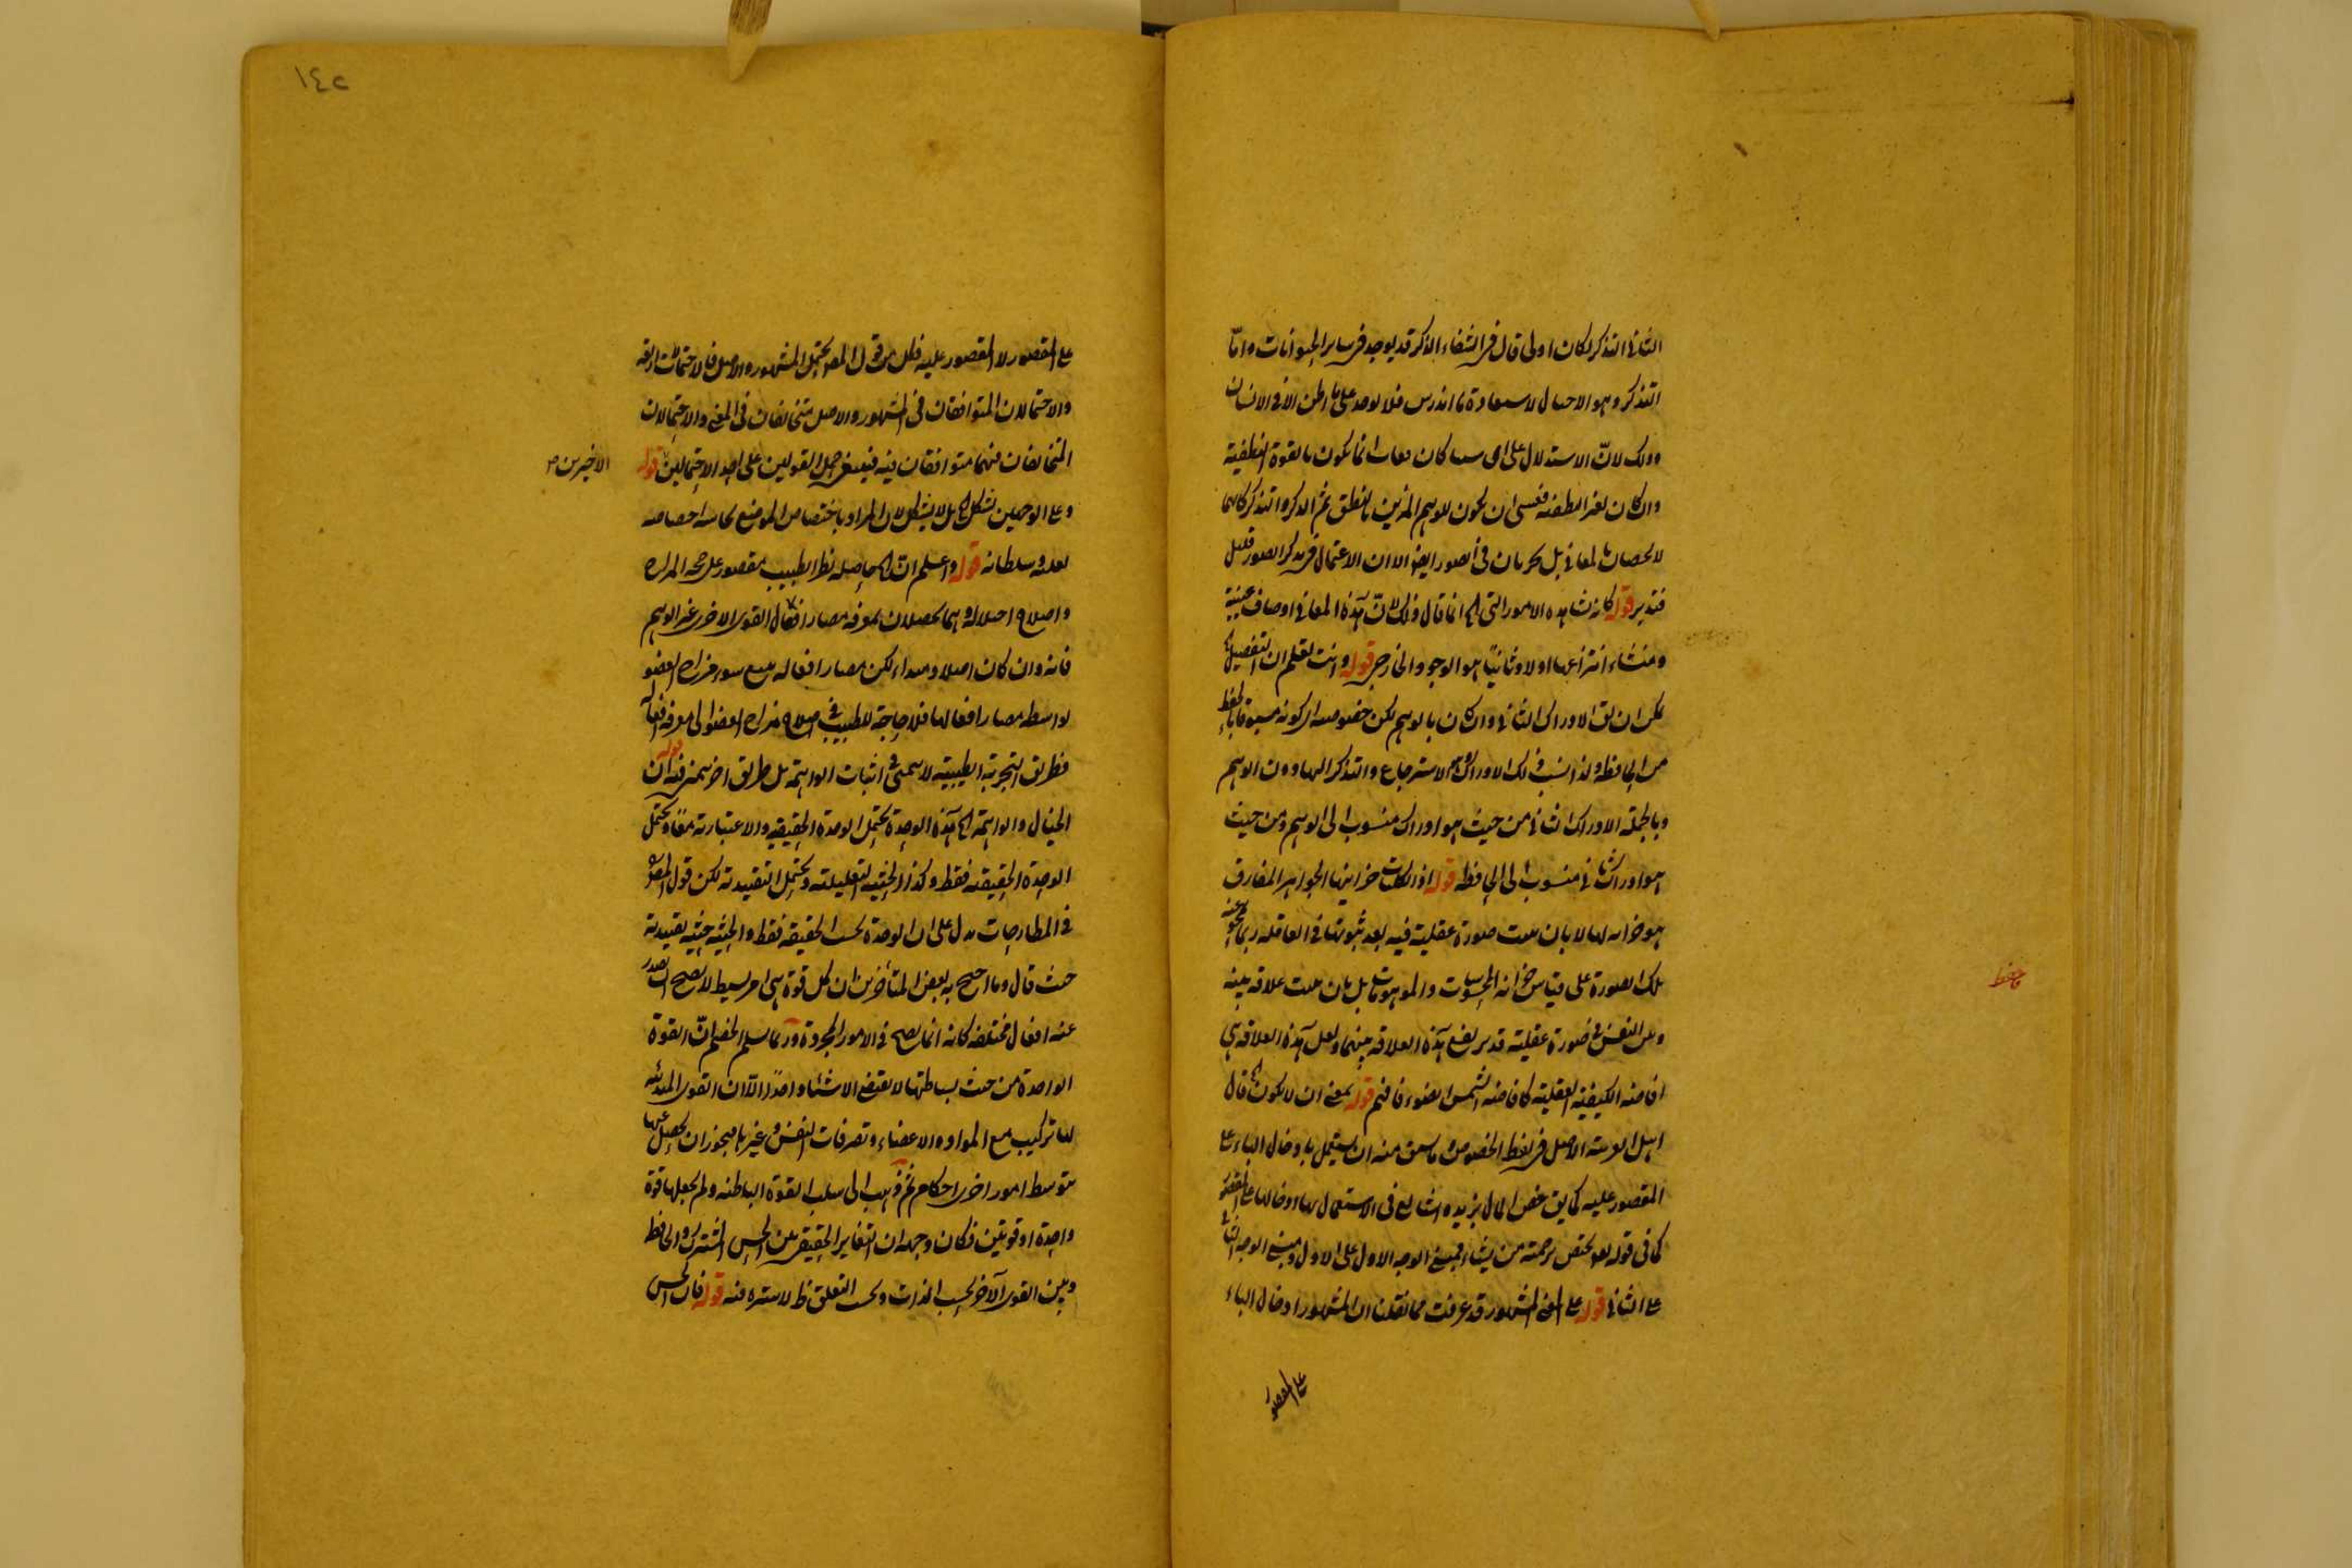 الثانى التذكر لكان اولى قال فى الشفاء الذكر قد يوجد فى سائر الحيوانات واما
التذكر وهو الاحتيال لاستعادة ما اندرس فلا يوجد على ما اظن الا فى الانسان
وذلك لان الاستدلال على ان شيئا كان فغاب انما يكون بالقوة النطقية
وان كان لغير النطقية فعسى ان يكون للوهم المزين بالنطق ثم الذكر والتذكر كانهما
لا يخصان بالمعانى بل يجريان فى الصور ايضا الا ان الاعتمال فى تذكر الصور قليل
فتدبر قوله كانه شاهد الامور التى الخ انما قال ذلك لان هذه المعانى اوصاف عينية
ومنشاء انتزاعها اولا وثانيا هو الوجود الخارجى قوله وانت تعلم ان التفصيل الخ
يمكن ان يق الادراك الثانى وان كان بالوهم لكن خصوصية كونه مسبوقا بالحفظ
من الحافظة ولذا نسب ذلك الادراك وهو الاسترجاع والتذكر اليها دون الوهم
وبالجملة الادراك الثانى من حيث هو ادراك منسوب الى الوهم ومن حيث
هو ادراك ثانى منسوب الى الحافظة قوله اذ الكليات خزاينها الجواهر المفارق
هو خزانة لها لا بان يثبت صورة عقلية فيه بعد ثبوتها فى العاقلة ربما تمحو عنه
تلك الصورة على قياس خزانة المحسوسات والموهومات بل بان يثبت علاقة بينه
وبين النفس فى صورة عقلية قد يرتفع هذه العلاقة بينهما ولعل هذه العلاقة هى
افاضته الكيفية العقلية كافاضة الشمس الضوء فافهم قوله بمعنى ان لا يكون الخ قال
اهل العربية الاصل فى لفظ الخصوص وما يشتق منه ان يستعمل بادخال الباء على
المقصور عليه كما يق خص المال بزيد والشايع فى الاستعمال بها ادخالها على المقصور
كما فى قوله تعالى يختص برحمته من يشاء فمبنى الوجه الاول على الاول ومبنى الوجه الثانى
على الثانى قوله على المعنى المشهور قد عرفت مما نقلنا ان المشهور ادخال الباء
على المقصور
حافظ
١٤٢
على المقصور لا المقصور عليه فكل من قول المص يحتمل المشهور والاصل فالاحتمالات اربعة
والاحتمالان المتوافقان فى المشهور والاصل متخالفان فى المعنى والاحتمالان
المتخالفان فيهما متوافقان فيه فينبغى حمل القولين على احد الاحتمالين قوله
الاخيرين صح
وعلى الوجهين يشكل الخ بل لا يشكل لان المراد باختصاص الموضع بحاسة اختصاصه
لعدته وسلطانه قوله واعلم ان الخ حاصله نظر الطبيب مقصور على صحة المزاج
واصلاح اختلاله وهما يحصلان بمعرفة مضار افعال القوى الاخرى غير الوهم
فانه وان كان اصلا ومبداء لكن مضار افعاله يتبع سوء مزاج العضو
بواسطة مضار افعالها فلا حاجة للطبيب فى اصلاح مزاج العضو الى معرفة افعاله
فطريق التجربة الطبيبية لا يتمشى فى اثبات الواهمة بل طريق اخر يتمشى فيه قوله ان
الخيال والواهمة الخ هذه الوحدة تحتمل الوحدة الحقيقية والاعتبارية معا وتحتمل
الوحدة الحقيقية فقط وكذا الحيثية التعليلية وتحتمل التقييدية لكن قول المص
فى المطارحات يدل على ان الوحدة بحسب الحقيقة فقط والحيثية حيثية تقييدية
حيث قال وما احتج به بعض المتأخرين ان كل قوة هى امر بسيط لا يصح ان يصدر
عنه افعال مختلفة كانه انما يصح فى الامور المجردة وربما سلم الخصم ان القوة
الواحدة من حيث بساطتها لا يقتضى الا شيئا واحدا الا ان القوى البدنية
لها تركيب مع المواد والاعضاء وتصرفات النفس وغيرها فيجوز ان يحصل عنها
بتوسط امور اخرى احكام ثم ذهب الى سلب القوة الباطنة ولم يجعلها قوة
واحدة او قوتين فكان وجهه ان التغاير الحقيقى بين الحس المشترك والحافظ
وبين القوى الآخر بحسب الذات وبحسب التعلق ظ لا سترة فيه قوله فان الحس